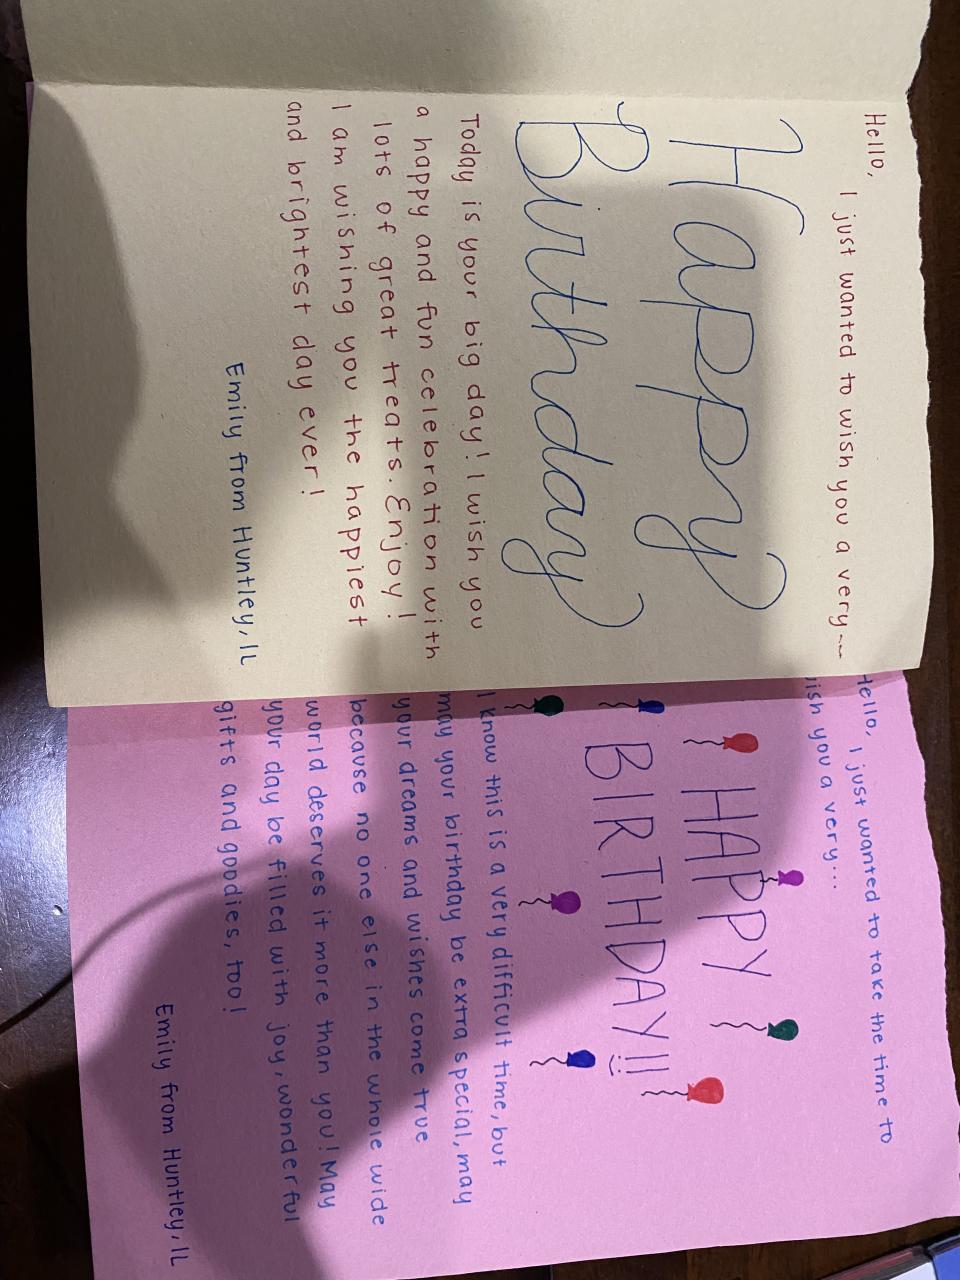 Hello,
I just wanted to wish you a very~~
Happy
Birthday
Today is your big day! I wish you
a happy and fun celebration with
lots of great treats. Enjoy!
I am wishing you the happiest
and brightest day ever!
Emily from Huntley, IL
Hello, I just wanted to take the time to
wish you a very...
HAPPY
BIRTHDAY!!
I know this is a very difficult time, but
may your birthday be extra special, may
your dreams and wishes come true
because no one else in the whole wide
world deserves it more than you! May
your day be filled with joy, wonderful
gifts and goodies, too!
Emily from Huntley, IL